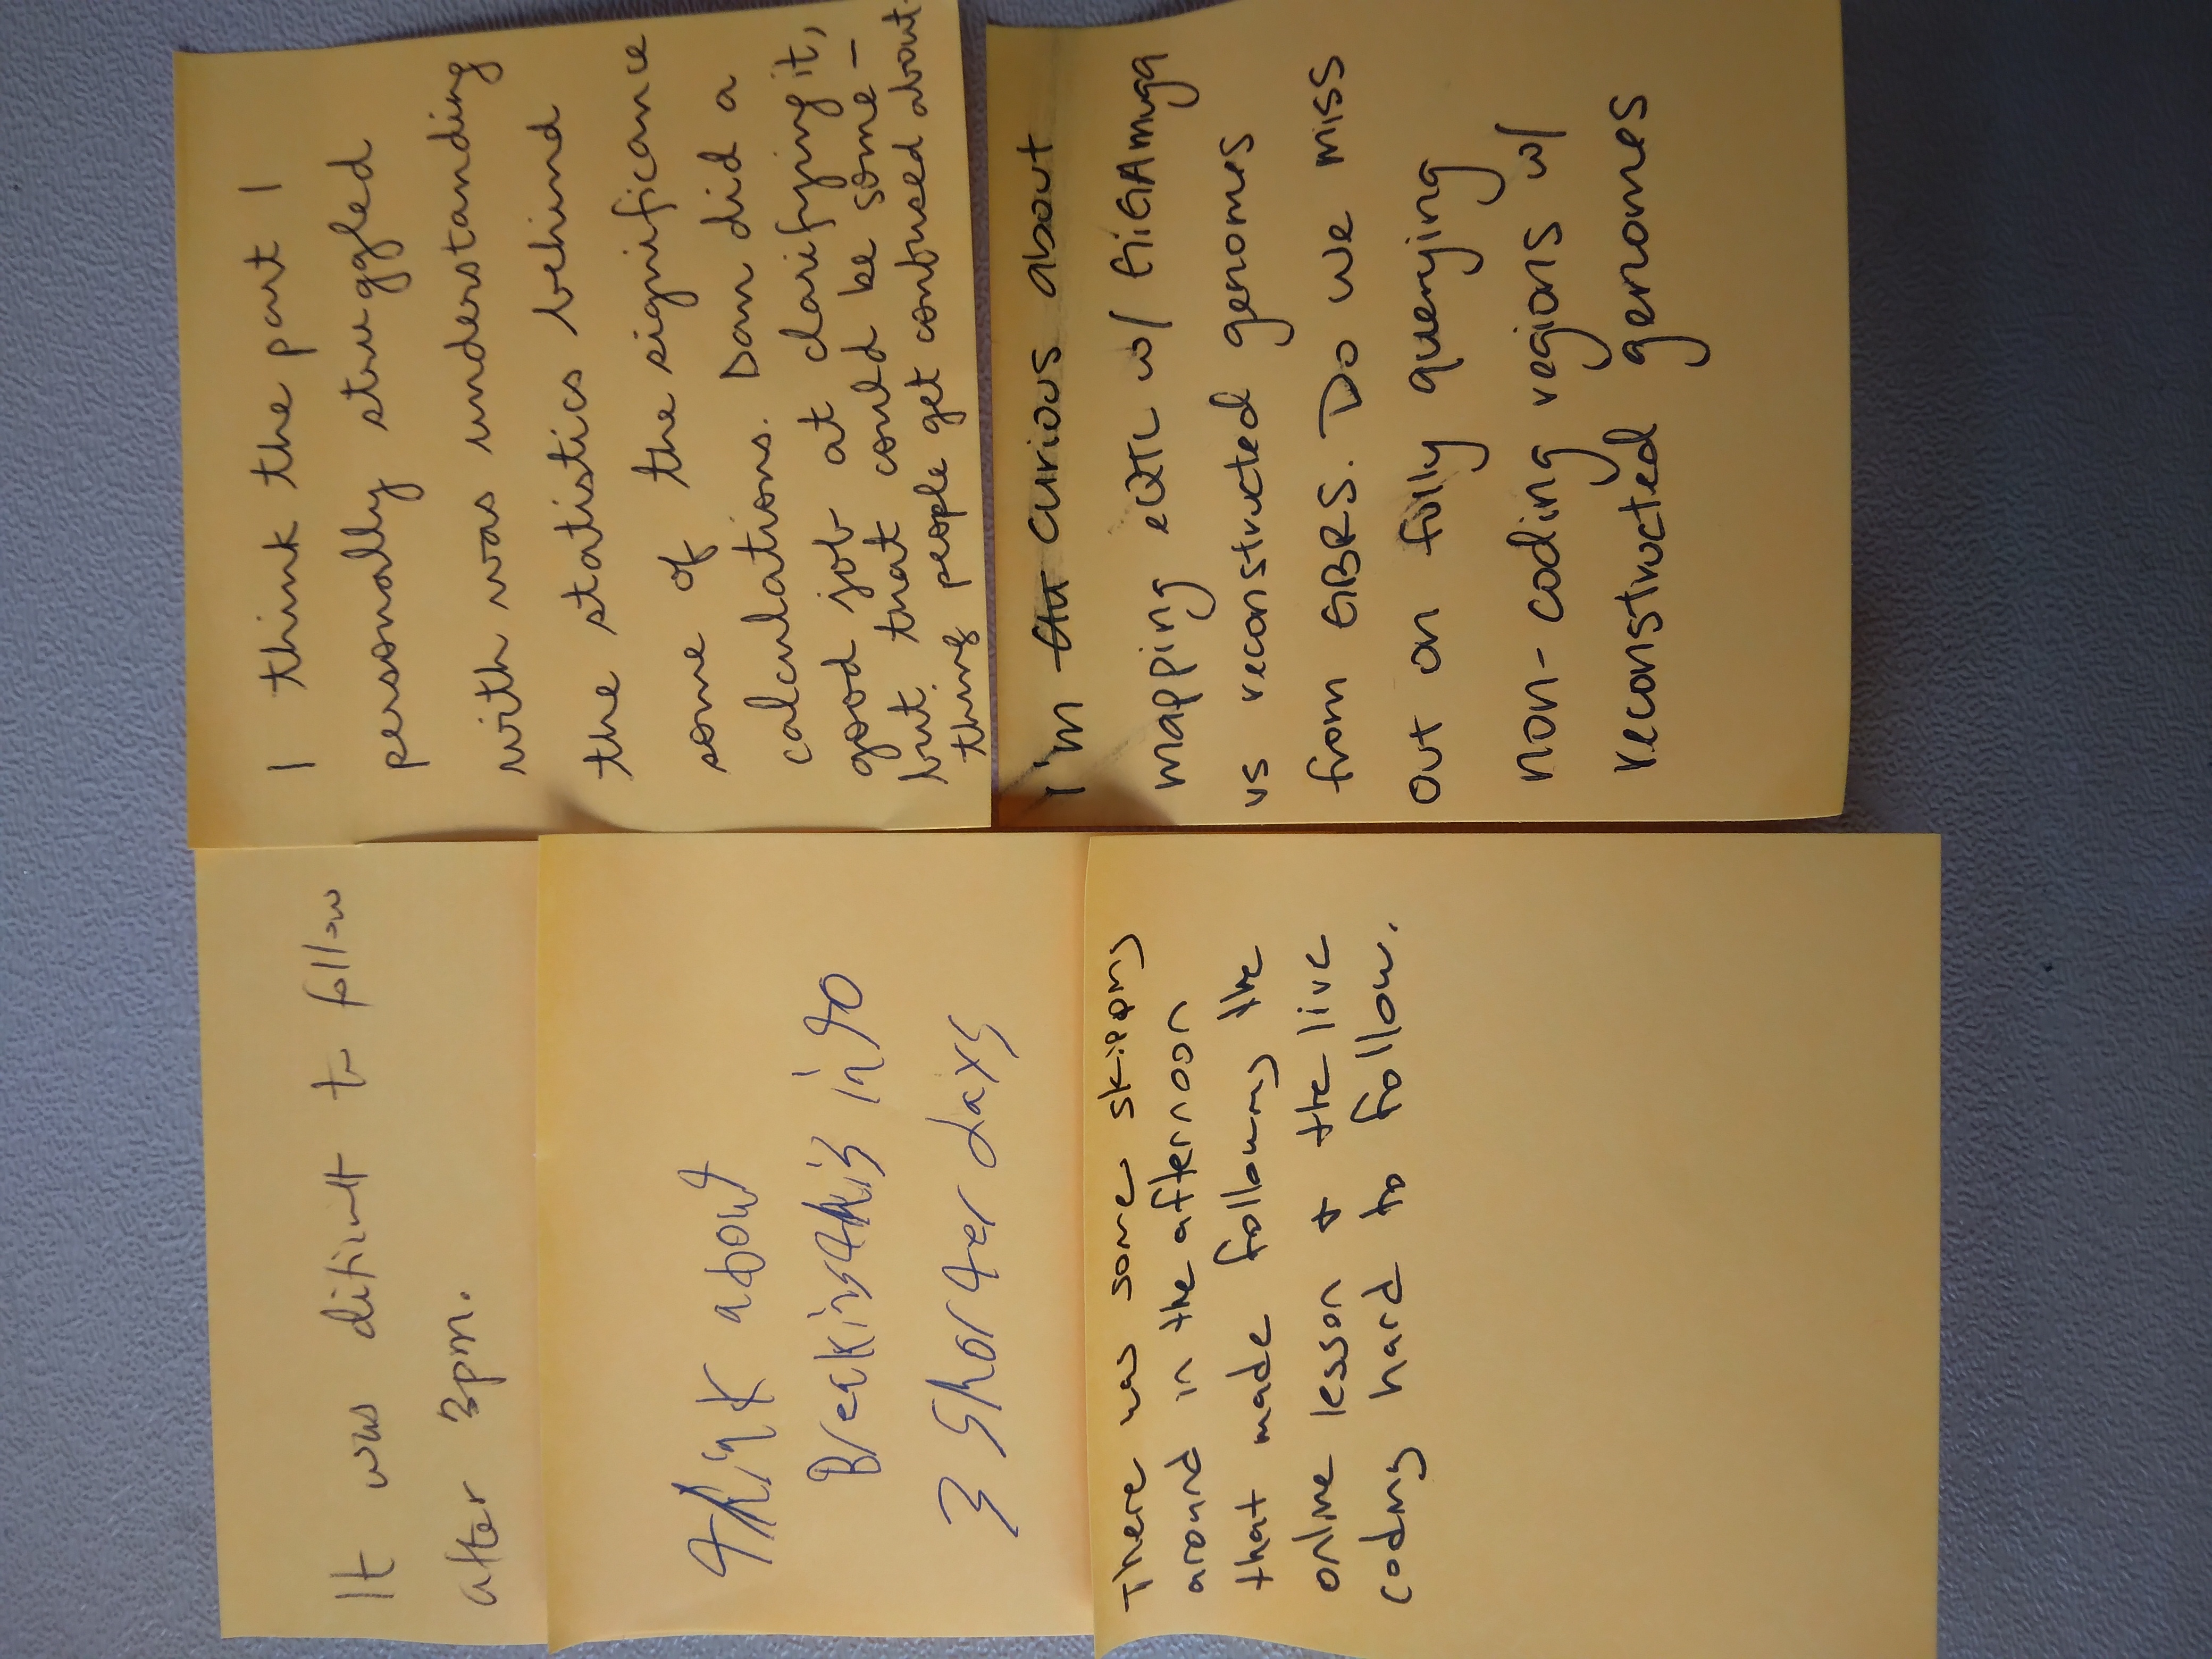 It was dificult to follow
after 3pm.
Think about
Breaking this into
3 Shorter days
There was some skipping
around in the afternoon
that made following the
online lesson + the live
coding hard to follow.
I think the part I
personally struggled
with was understanding
the statistics behind
some of the significance
calculations. Dan did a
good job at clarifying it,
but that could be some-
thing people get confused about.
I'm curious about
mapping eQTL w/ GiGAmuga
vs reconstructed genomes
from GBRS. Do we miss
out on fully querying
non-coding regions w/
reconstructed genomes